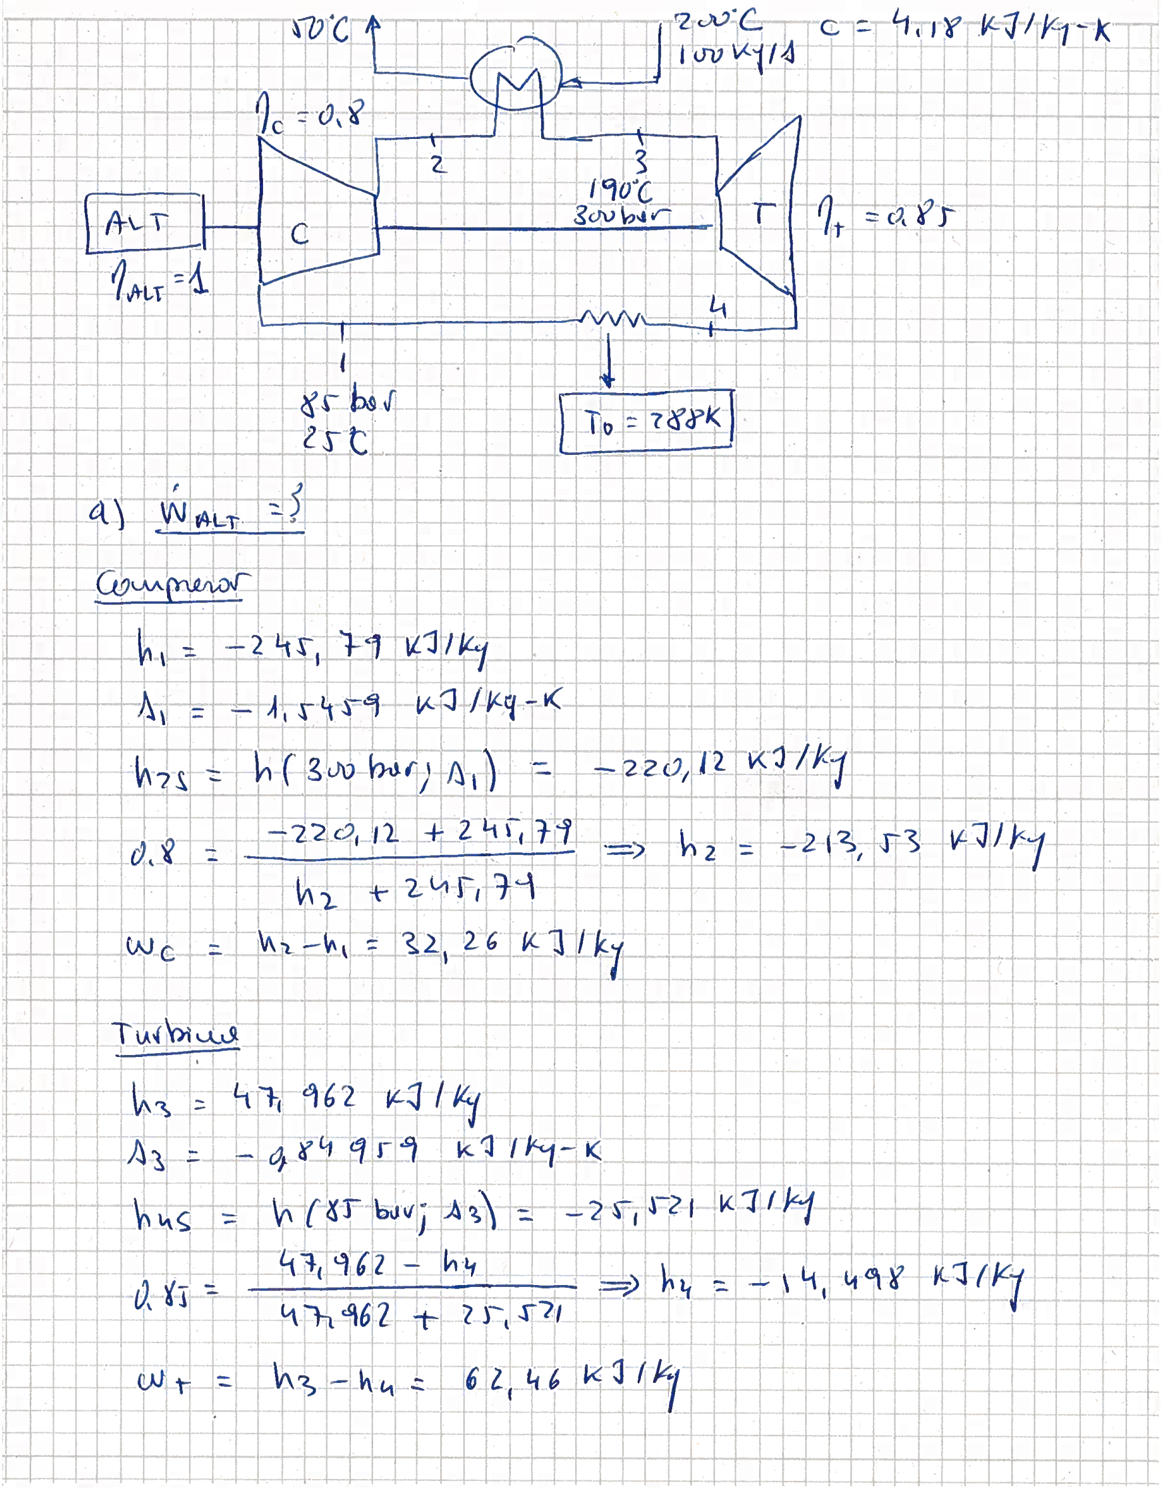 50°C
200°C
100 kg/s
c = 4,18 kJ/kg-K
ηc = 0,8
2
3
190°C
300 bar
ALT
C
T
ηT = 0,85
ηALT = 1
4
1
85 bar
25°C
T0 = 288K
a) ẆALT = ?
Compresor
h1 = -245,79 kJ/kg
s1 = -1,5459 kJ/kg-K
h2s = h(300 bar; s1) = -220,12 kJ/kg
0.8 = (-220,12 + 245,79) / (h2 + 245,79) ⇒ h2 = -213,53 kJ/kg
wc = h2 - h1 = 32,26 kJ/kg
Turbina
h3 = 47,962 kJ/kg
s3 = -0,84959 kJ/kg-K
h4s = h(85 bar; s3) = -25,521 kJ/kg
0.85 = (47,962 - h4) / (47,962 + 25,521) ⇒ h4 = -14,498 kJ/kg
wT = h3 - h4 = 62,46 kJ/kg